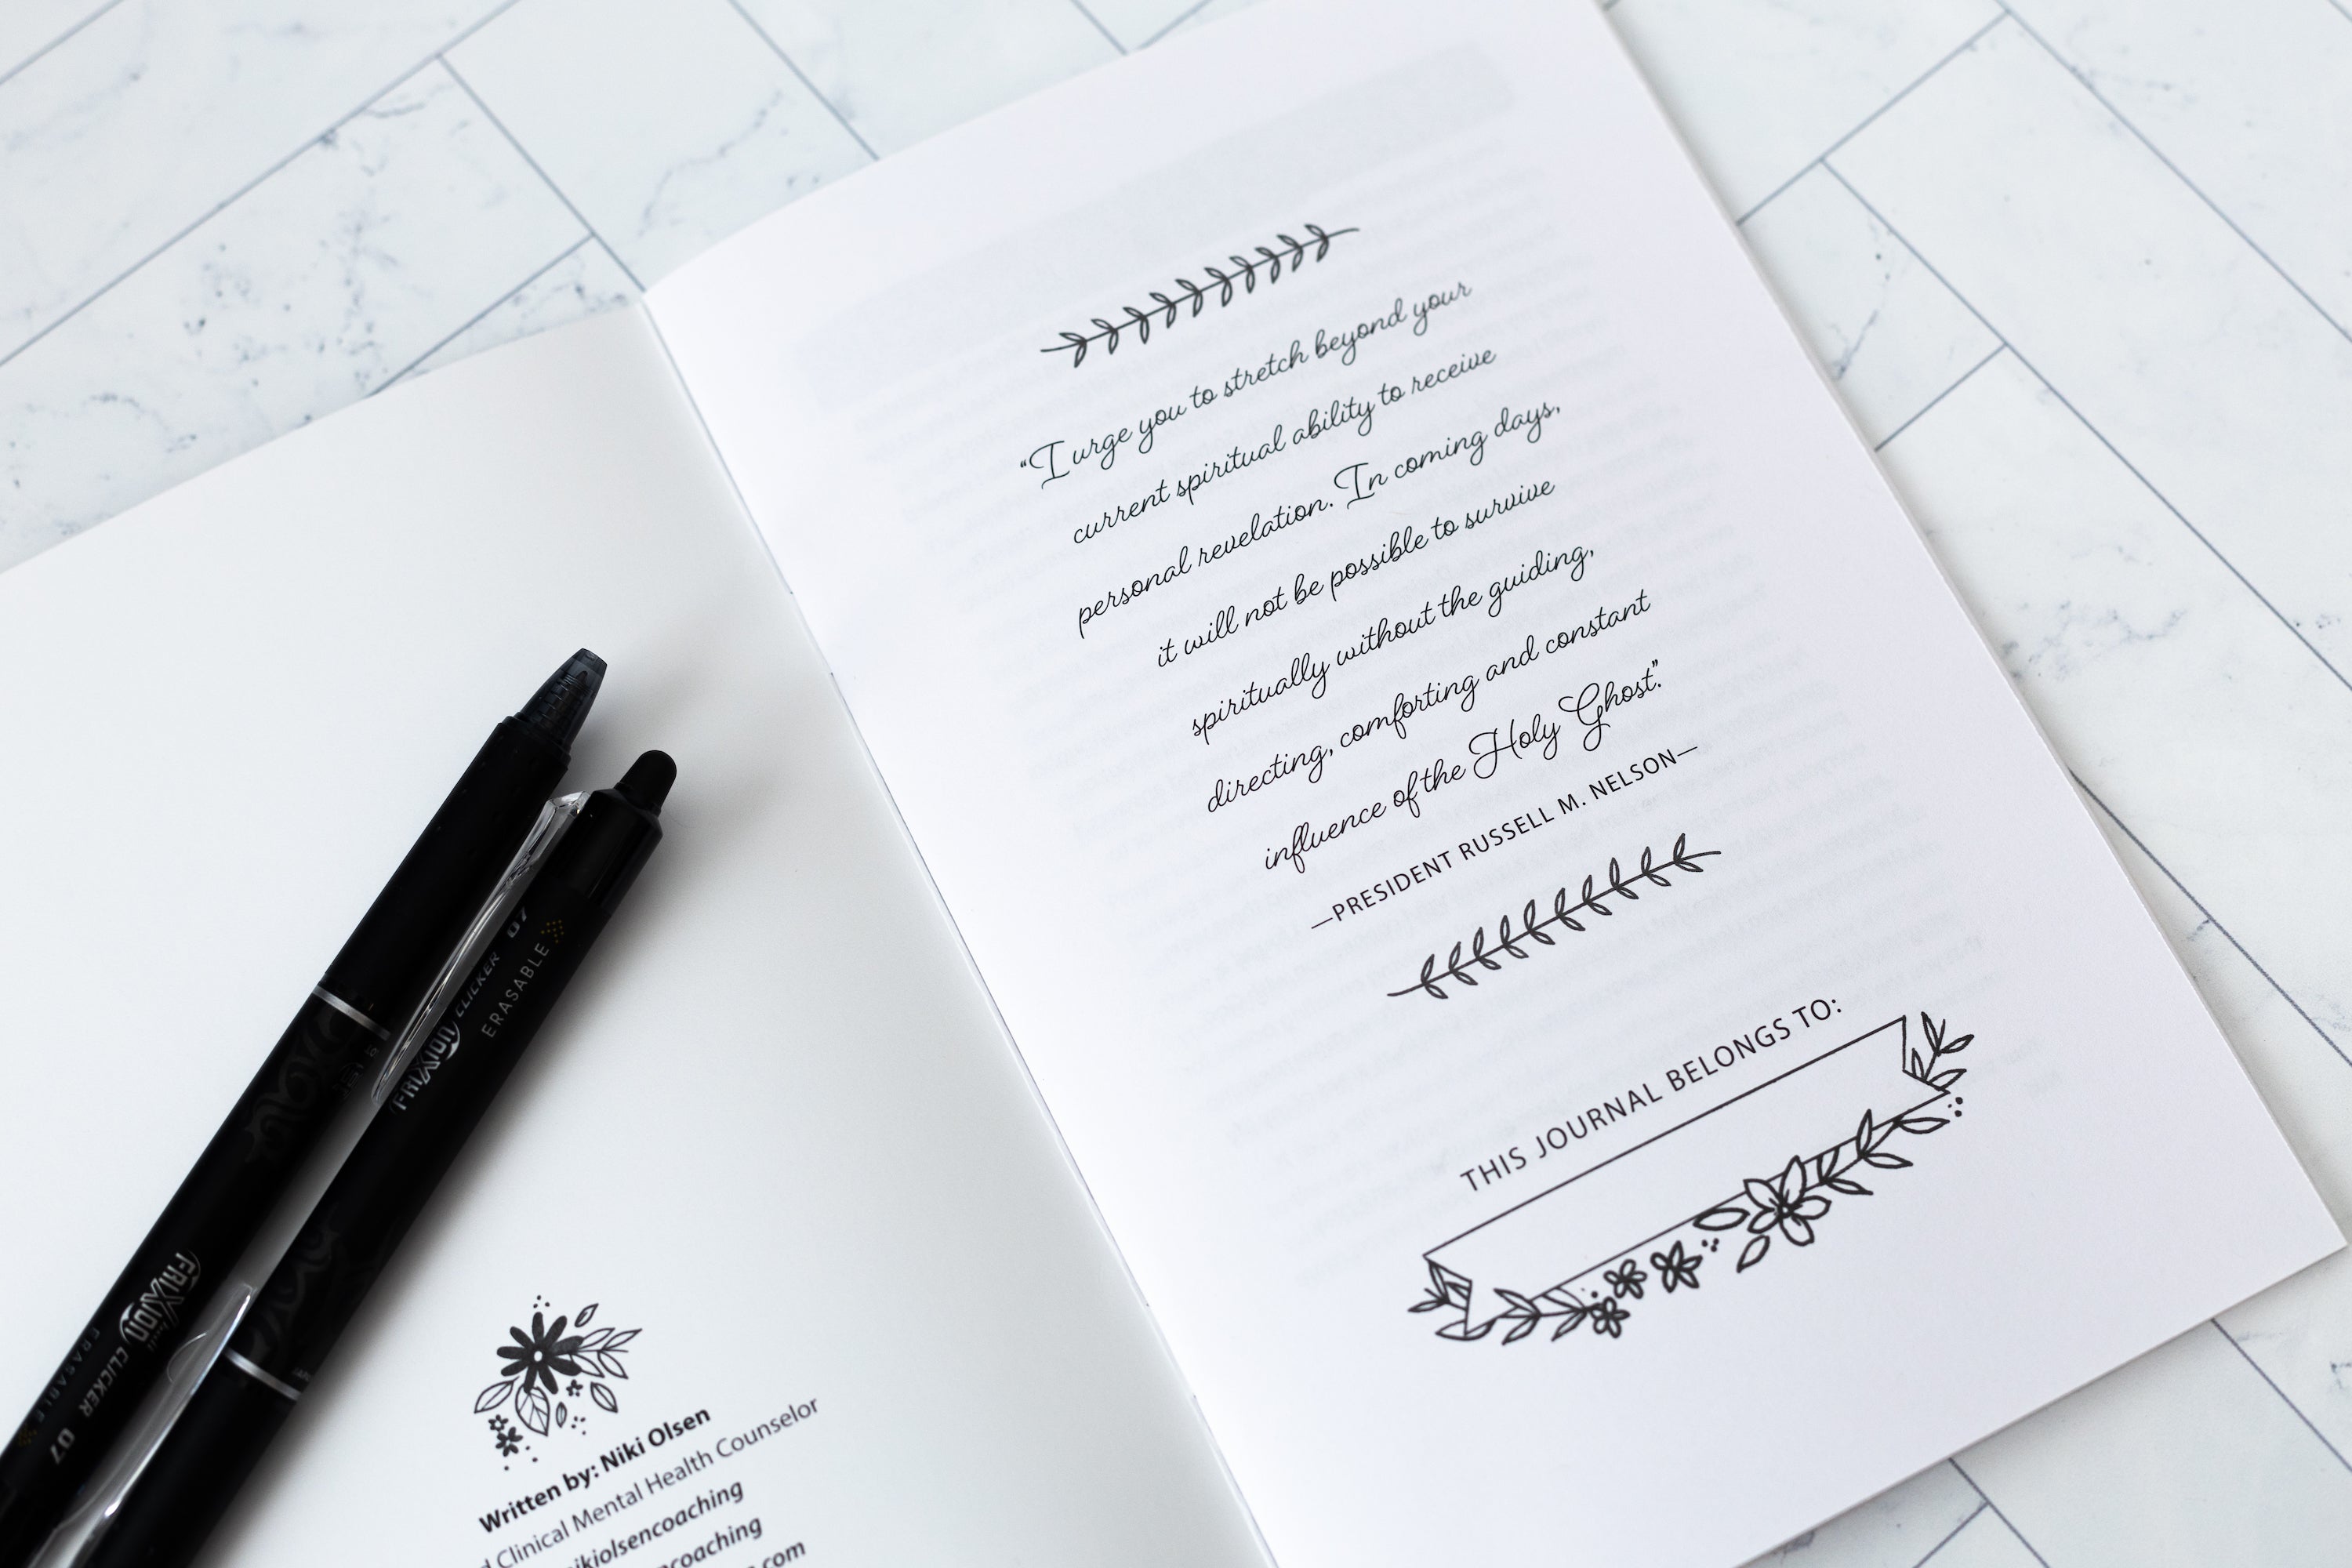 FRIXION CLICKER 07
ERASABLE
FRIXION CLICKER 07
ERASABLE
Written by: Niki Olsen
Clinical Mental Health Counselor
nikiolsencoaching
"I urge you to stretch beyond your
current spiritual ability to receive
personal revelation. In coming days,
it will not be possible to survive
spiritually without the guiding,
directing, comforting and constant
influence of the Holy Ghost."
—PRESIDENT RUSSELL M. NELSON—
THIS JOURNAL BELONGS TO: